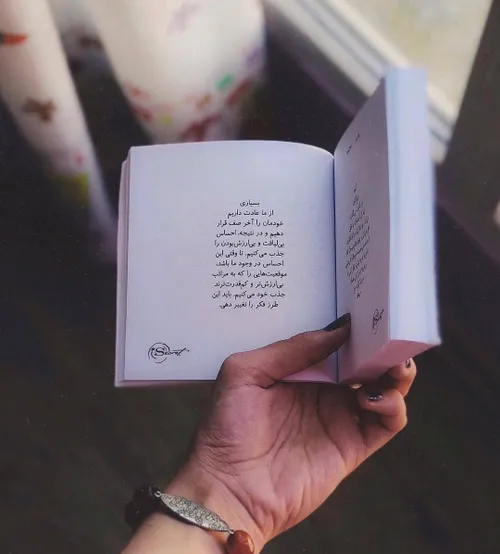 بسیاری
از ما عادت داریم
خودمان را آخر صف قرار
دهیم و در نتیجه، احساس
بی‌لیاقت و بی‌ارزش‌بودن را
جذب می‌کنیم. تا وقتی این
احساس در وجود ما باشد،
موقعیت‌هایی را که به مراتب
بی‌ارزش‌تر و کم‌قدرت‌ترند
جذب خود می‌کنیم. باید این
طرز فکر را تغییر دهی.
Secret